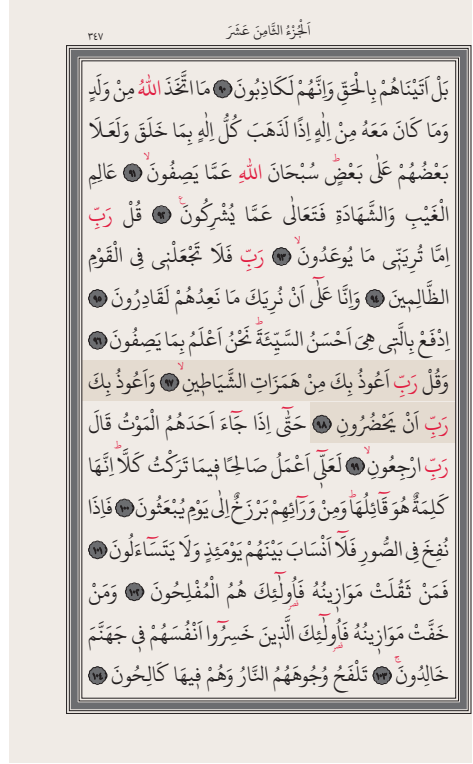 اَلْجُزْءُ الثَّامِنَ عَشَرَ
٣٤٧
بَلْ اَتَيْنَاهُمْ بِالْحَقِّ وَاِنَّهُمْ لَكَاذِبُونَ ٩٠ مَا اتَّخَذَ اللّٰهُ مِنْ وَلَدٍ
وَمَا كَانَ مَعَهُ مِنْ اِلٰهٍ اِذًا لَذَهَبَ كُلُّ اِلٰهٍ بِمَا خَلَقَ وَلَعَلَا
بَعْضُهُمْ عَلٰى بَعْضٍۜ سُبْحَانَ اللّٰهِ عَمَّا يَصِفُونَۙ ٩١ عَالِمِ
الْغَيْبِ وَالشَّهَادَةِ فَتَعَالٰى عَمَّا يُشْرِكُونَ۟ ٩٢ قُلْ رَبِّ
اِمَّا تُرِيَنّ۪ى مَا يُوعَدُونَۙ ٩٣ رَبِّ فَلَا تَجْعَلْن۪ى فِى الْقَوْمِ
الظَّالِم۪ينَ ٩٤ وَاِنَّا عَلٰٓى اَنْ نُرِيَكَ مَا نَعِدُهُمْ لَقَادِرُونَ ٩٥
اِدْفَعْ بِالَّت۪ى هِىَ اَحْسَنُ السَّيِّئَةَۜ نَحْنُ اَعْلَمُ بِمَا يَصِفُونَ ٩٦
وَقُلْ رَبِّ اَعُوذُ بِكَ مِنْ هَمَزَاتِ الشَّيَاط۪ينِۙ ٩٧ وَاَعُوذُ بِكَ
رَبِّ اَنْ يَحْضُرُونِ ٩٨ حَتّٰٓى اِذَا جَٓاءَ اَحَدَهُمُ الْمَوْتُ قَالَ
رَبِّ ارْجِعُونِۙ ٩٩ لَعَلّ۪ٓى اَعْمَلُ صَالِحًا ف۪يمَا تَرَكْتُ كَلَّاۜ اِنَّهَا
كَلِمَةٌ هُوَ قَٓائِلُهَاۜ وَمِنْ وَرَٓائِهِمْ بَرْزَخٌ اِلٰى يَوْمِ يُبْعَثُونَ ١٠٠ فَاِذَا
نُفِخَ فِى الصُّورِ فَلَٓا اَنْسَابَ بَيْنَهُمْ يَوْمَئِذٍ وَلَا يَتَسَٓاءَلُونَ ١٠١
فَمَنْ ثَقُلَتْ مَوَاز۪ينُهُ فَاُو۬لٰٓئِكَ هُمُ الْمُفْلِحُونَ ١٠٢ وَمَنْ
خَفَّتْ مَوَاز۪ينُهُ فَاُو۬لٰٓئِكَ الَّذ۪ينَ خَسِرُٓوا اَنْفُسَهُمْ ف۪ى جَهَنَّمَ
خَالِدُونَۚ ١٠٣ تَلْفَحُ وُجُوهَهُمُ النَّارُ وَهُمْ ف۪يهَا كَالِحُونَ ١٠٤